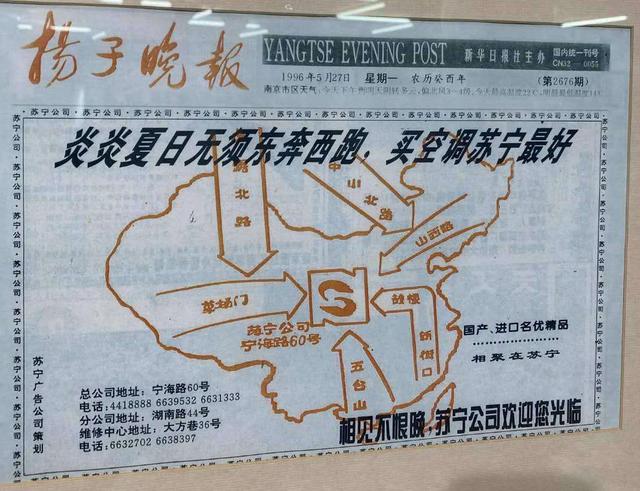 揚子晚報
YANGTSE EVENING POST
新华日报社主办
国内统一刊号
CN32—0055
1996年5月27日 星期一 农历癸酉年 (第2676期)
南京市区天气:今天下午到明天阴转多云,偏北风3—4级,今天最高温度22℃,明晨最低温度14℃
炎炎夏日无须东奔西跑,买空调苏宁最好
湖北路
中山北路
山西路
草场门
鼓楼
新街口
五台山
苏宁公司
宁海路60号
国产、进口名优精品
相聚在苏宁
苏宁广告公司策划
总公司地址:宁海路60号
电话:4418888 6639532 6631333
分公司地址:湖南路44号
维修中心地址:大方巷36号
电话:6632702 6638397
相见不恨晚,苏宁公司欢迎您光临